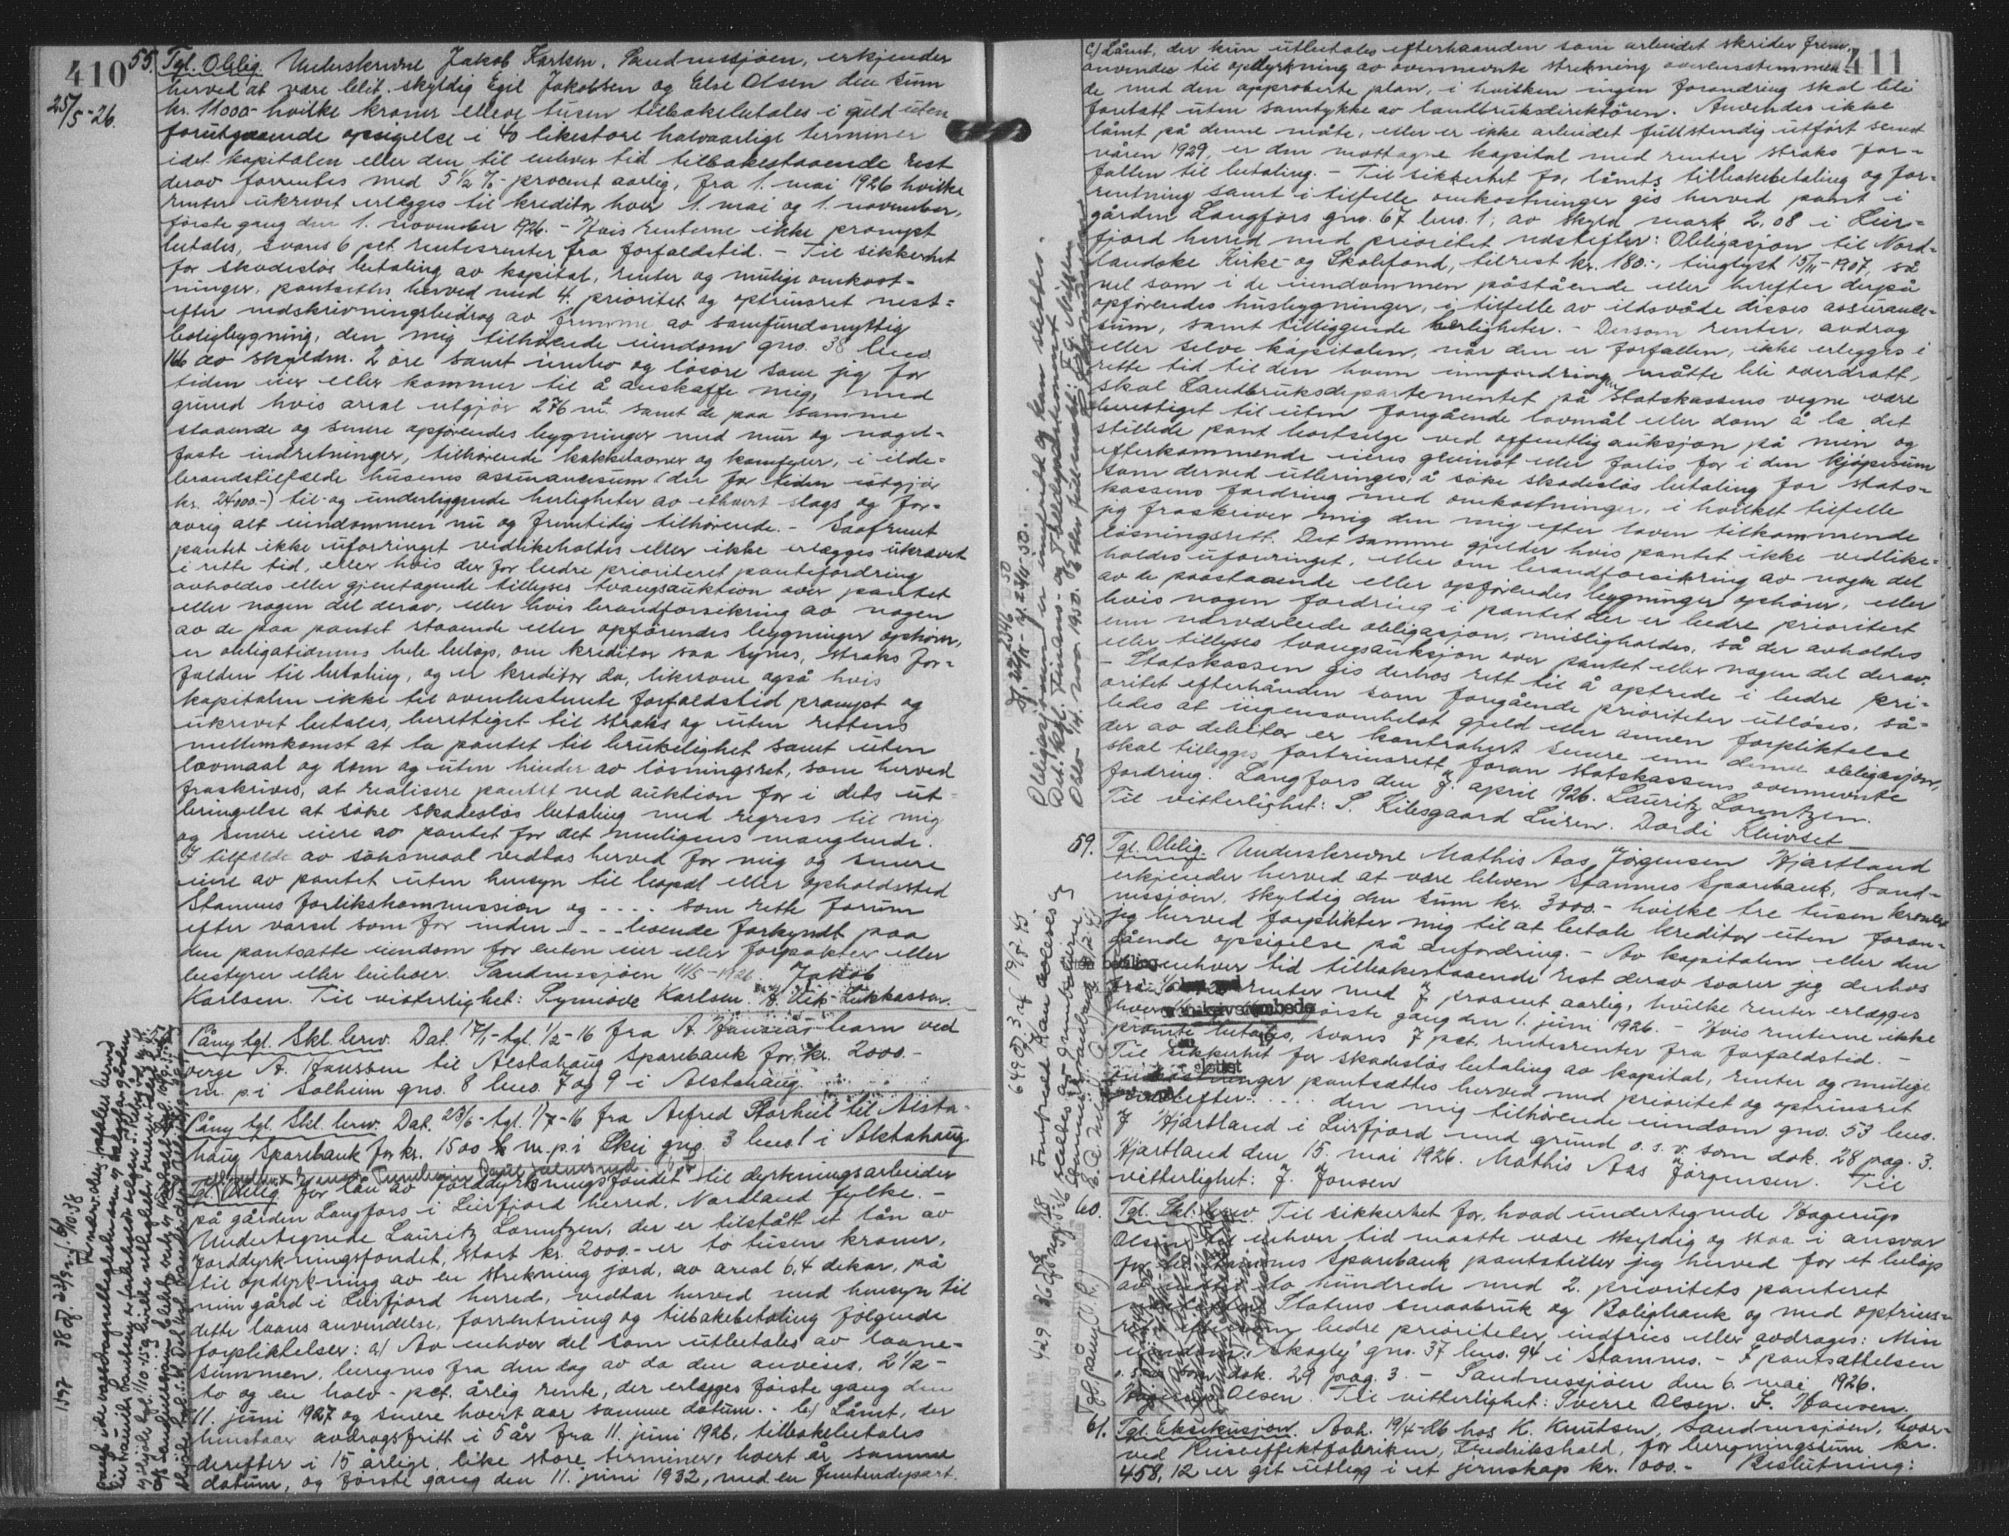 410
25/5-26.
55. Tgl. Oblig. Underskrevne Jakob Karlsen, Sandnessjøen, erkjender
herved at være blit skyldig Egil Jakobsen og Else Olsen den sum
kr. 11000- hvilke kroner elleve tusen tilbakebetales i guld uten
forutgaaende opsigelse i 40 likestore halvaarlige terminer
idet kapitalen eller den til enhver tid tilbakestaaende rest
derav forrentes med 5 1/2 %- procent aarlig, fra 1. mai 1926 hvilke
renter ukrævet erlægges til kreditor hver 1. mai og 1. november,
første gang den 1. november 1926. - Hvis renterne ikke prompt
betales, svares 6 pct rentesrenter fra forfaldstid. - Til sikkerhet
for skadesløs betaling av kapital, renter og mulige omkost-
ninger, pantsettes herved med 4. prioritet og optrinsret nest-
efter nedskrivningsbidrag av fremme av samfundsnyttig
boligbygning, den mig tilhørende eiendom gno. 38 bno.
166 av skyldm. 2 øre samt innbo og løsøre som jeg for
tiden eier eller kommer til å anskaffe mig, med
grund hvis areal utgjør 276 m² samt de paa samme
staaende og senere opførendes bygninger med mur og nagel-
faste indretninger, tilhørende kakkelovner og komfyrer, i ilde-
brandstilfælde husenes assurancesum (der for tiden utgjør
kr. 24000.-) til- og underliggende herligheter av ethvert slags og for-
øvrig alt eiendommen nu og fremtidig tilhørende. - Saafremt
pantet ikke uforringet vedlikeholdes eller ikke erlægges ukrævet
i rette tid, eller hvis der for bedre prioriteret pantefordring
avholdes eller gjentagende tillyses tvangsauktion over pantet
eller nogen del derav, eller hvis brandforsikring av nogen
av de paa pantet staaende eller opførendes bygninger ophører,
er obligationens hele beløp, om kreditor saa synes, straks for-
falden til betaling, og er kreditor da, likesom også hvis
kapitalen ikke til ovenbestemte forfaldstid prompt og
ukrevet betales, berettiget til straks og uten rettens
mellemkomst at ta pantet til brukelighet samt uten
lovmaal og dom og uten hinder av løsningsret, som herved
fraskrives, at realisere pantet ved auktion for i dets ut-
bringelse at søke skadesløs betaling med regress til mig
og senere eiere av pantet for det muligens manglende.
I tilfælde av søksmaal vedtas herved for mig og senere
eiere av pantet uten hensyn til bopæl eller opholdssted
Stamnes forlikskommission og .... som rette forum
efter varsel som for inden- .. - boende forkyndt paa
den pantsatte eiendom for enten eier eller forpakter eller
bestyrer eller beboer. Sandnessjøen 11/5-1926. Jakob
Karlsen. Til vitterlighet: Synnøve Karlsen.
Påny tgl. Skl. brev. Dat. 17/1-tgl. 1/2-16 fra A. barn ved
verge A. Hanssen til Alstahaug Sparebank for kr. 2000.-
m. p. i Solheim gno. 8 bno. 7 og 9 i Alstahaug.
Påny tgl. Skl. brev. Dat. 23/6-tgl. 1/7-16 fra Alfred Storhei til Alsta-
haug Sparebank for kr. 1500 m. p. i Skei gno. 3 bno. 1 i Alstahaug
Oblig for lån av Jorddyrkningsfondet til dyrkningsarbeider
på gården Langfors i Leirfjord herred, Nordland fylke. -
Undertegnede Lauritz Lorentzen, der er tilstått et lån av
Jorddyrkningsfondet, stort kr. 2000.- er to tusen kroner,
til opdyrkning av en strekning jord, av areal 6,4 dekar, på
min gård i Leirfjord herred, vedtar herved med hensyn til
dette laans anvendelse, forrentning og tilbakebetaling følgende
forpliktelser: a) Av enhver del som utbetales av laane-
summen, beregnes fra den dag av da den anvises, 2 1/2 -
to og en halv - pct. årlig rente, der erlægges første gang den
11. juni 1927 og senere hvert aar samme datum. - b) Lånet, der
henstaar avdragsfritt i 5 år fra 11. juni 1926, tilbakebetales
derefter i 15 årlige like store terminer, hvert år samme
datum, og første gang den 11. juni 1932, med en femtendepart.
411
c) Lånet, der kun utbetales efterhaanden som arbeidet skrider frem,
anvendes til opdyrkning av ovennevnte strekning overensstemmen-
de med den approberte plan, i hvilken ingen forandring skal bli
foretatt uten samtykke av landbruksdirektøren. Anvendes ikke
lånet på denne måte, eller er ikke arbeidet fullstendig utført senest
våren 1929, er den mottagne kapital med renter straks for-
fallen til betaling. - Til sikkerhet for lånets tilbakebetaling og for-
rentning samt i tilfelle omkostninger gis herved pant i
gården Langfors gno. 67 bno. 1, av skyld mark 2,08 i Leir-
fjord herred med prioritet næstefter: Obligasjon til Nord-
landske Kirke- og Skolefond, tilrest kr. 180.-, tinglyst 15/11-1907, så
vel som i de eiendommen påstående eller herefter derpå
opførendes husbygninger, i tilfelle av ildsvåde disses assuranse-
sum, samt tilliggende herligheter. - Dersom renter, avdrag
eller selve kapitalen, når den er forfallen, ikke erlegges i
rette tid til den hvem innfordringen måtte bli overdratt,
skal Landbruksdepartementet på statskassens vegne være
berettiget til uten forgående lovmål eller dom å la det
stillede pant bortselge ved offentlig auksjon på min og
efterkommende eieres gevinst eller forlis for i den kjøpesum
som derved utbringes, å søke skadesløs betaling for stats-
kassens fordring med omkostninger, i hvilket tilfelle
jeg fraskriver mig den mig efter loven tilkommende
løsningsrett. Det samme gjelder hvis pantet ikke vedlike-
holdes uforringet, eller om brandforsikring av nogen del
av de paastaaende eller opførendes bygninger ophører, eller
hvis nogen fordring i pantet der er bedre prioritert
enn nærværende obligasjon, misligholdes, så der avholdes
eller tillyses tvangsauksjon over pantet eller nogen del derav.
- Statskassen gis derhos rett til å optrede i bedre pri-
oritet efterhånden som forgående prioriteter utløses, så-
ledes at ingensomhelst gjeld eller annen forpliktelse
der av debitor er kontrahert senere enn denne obligasjon,
skal tillegges fortrinsrett foran statskassens ovennevnte
fordring. Langfors den 7. april 1926. Lauritz Lorentzen.
Til vitterlighet: S. Kibsgaard Leiren. Dordi Kleivset
59. Tgl. Oblig. Underskrevne Mathis Aas Jørgensen Hjartland
erkjender herved at være bleven Stamnes Sparebank, Sand-
nessjøen, skyldig den sum kr. 3000.- hvilke tre tusen kroner
jeg herved forplikter mig til at betale kreditor uten foran-
gående opsigelse på anfordring. - Av kapitalen eller den
til enhver tid tilbakestaaende rest derav svarer jeg derhos
renter med 7 prosent aarlig, hvilke renter erlegges
hver første gang den 1. juni 1926. - Hvis renterne ikke
promte betales, svares 7 pct. rentesrenter fra forfaldstid. -
Til sikkerhet for skadesløs betaling av kapital, renter og mulige
omkostninger pantsættes herved med prioritet og optrinsret
efter: .... den mig tilhørende eiendom gno. 53 bno.
7 Hjartland i Leirfjord med grund o. s. v. som dok. 28 pag. 3.
Hjartland den 15. mai 1926. Mathis Aas Jørgensen. Til
vitterlighet: J. Jonsen
60. Tgl. Skl. brev. Til sikkerhet for, hvad undertegnede Hagerup
Olsen til enhver tid maatte være skyldig og staa i ansvar
for til Stamnes Sparebank pantstiller jeg herved for et beløp
av to hundrede med 2. prioritets panteret
Statens smaabruk og Boligbank og med optrins-
ret bedre prioriteter indfries eller avdrages: Min
eiendom, Skogly gno. 37 bno. 94 i Stamnes. - I pantsættelsen
o. s. v. som dok. 29 pag. 3. - Sandnessjøen den 6. mai 1926.
Hagerup Olsen. Til vitterlighet: Sverre Olsen. F. Hansen.
61. Tgl. Eksekusjon. Avh. 19/4-26 hos K. Knutsen, Sandnessjøen, hvor-
ved Fredrikshald, for beregningssum kr.
458,12 er git utlegg i et jernskap kr. 000.- Beslutning: